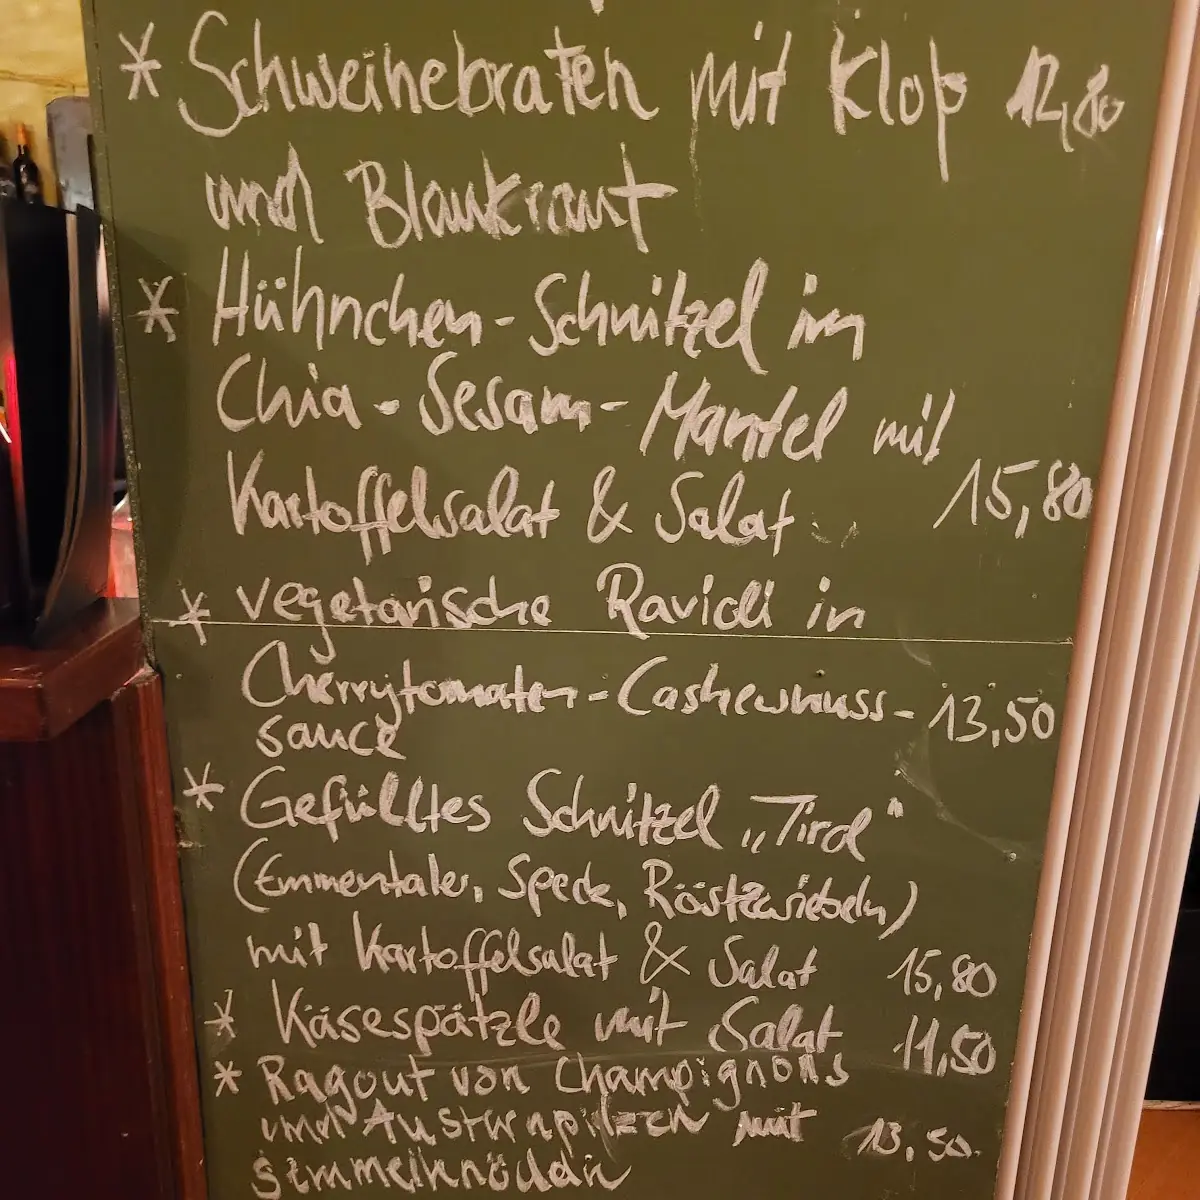 * Schweinebraten mit Kloß 12,80
und Blaukraut
* Hühnchen-Schnitzel im
Chia-Sesam-Mantel mit
Kartoffelsalat & Salat 15,80
* vegetarische Ravioli in
Cherrytomaten-Cashewnuss- 13,50
sauce
* Gefülltes Schnitzel „Tirol"
(Emmentaler, Speck, Röstzwiebeln)
mit Kartoffelsalat & Salat 15,80
* Käsespätzle mit Salat 11,50
* Ragout von Champignons
und Austernpilzen mit 13,50
Semmelknödeln